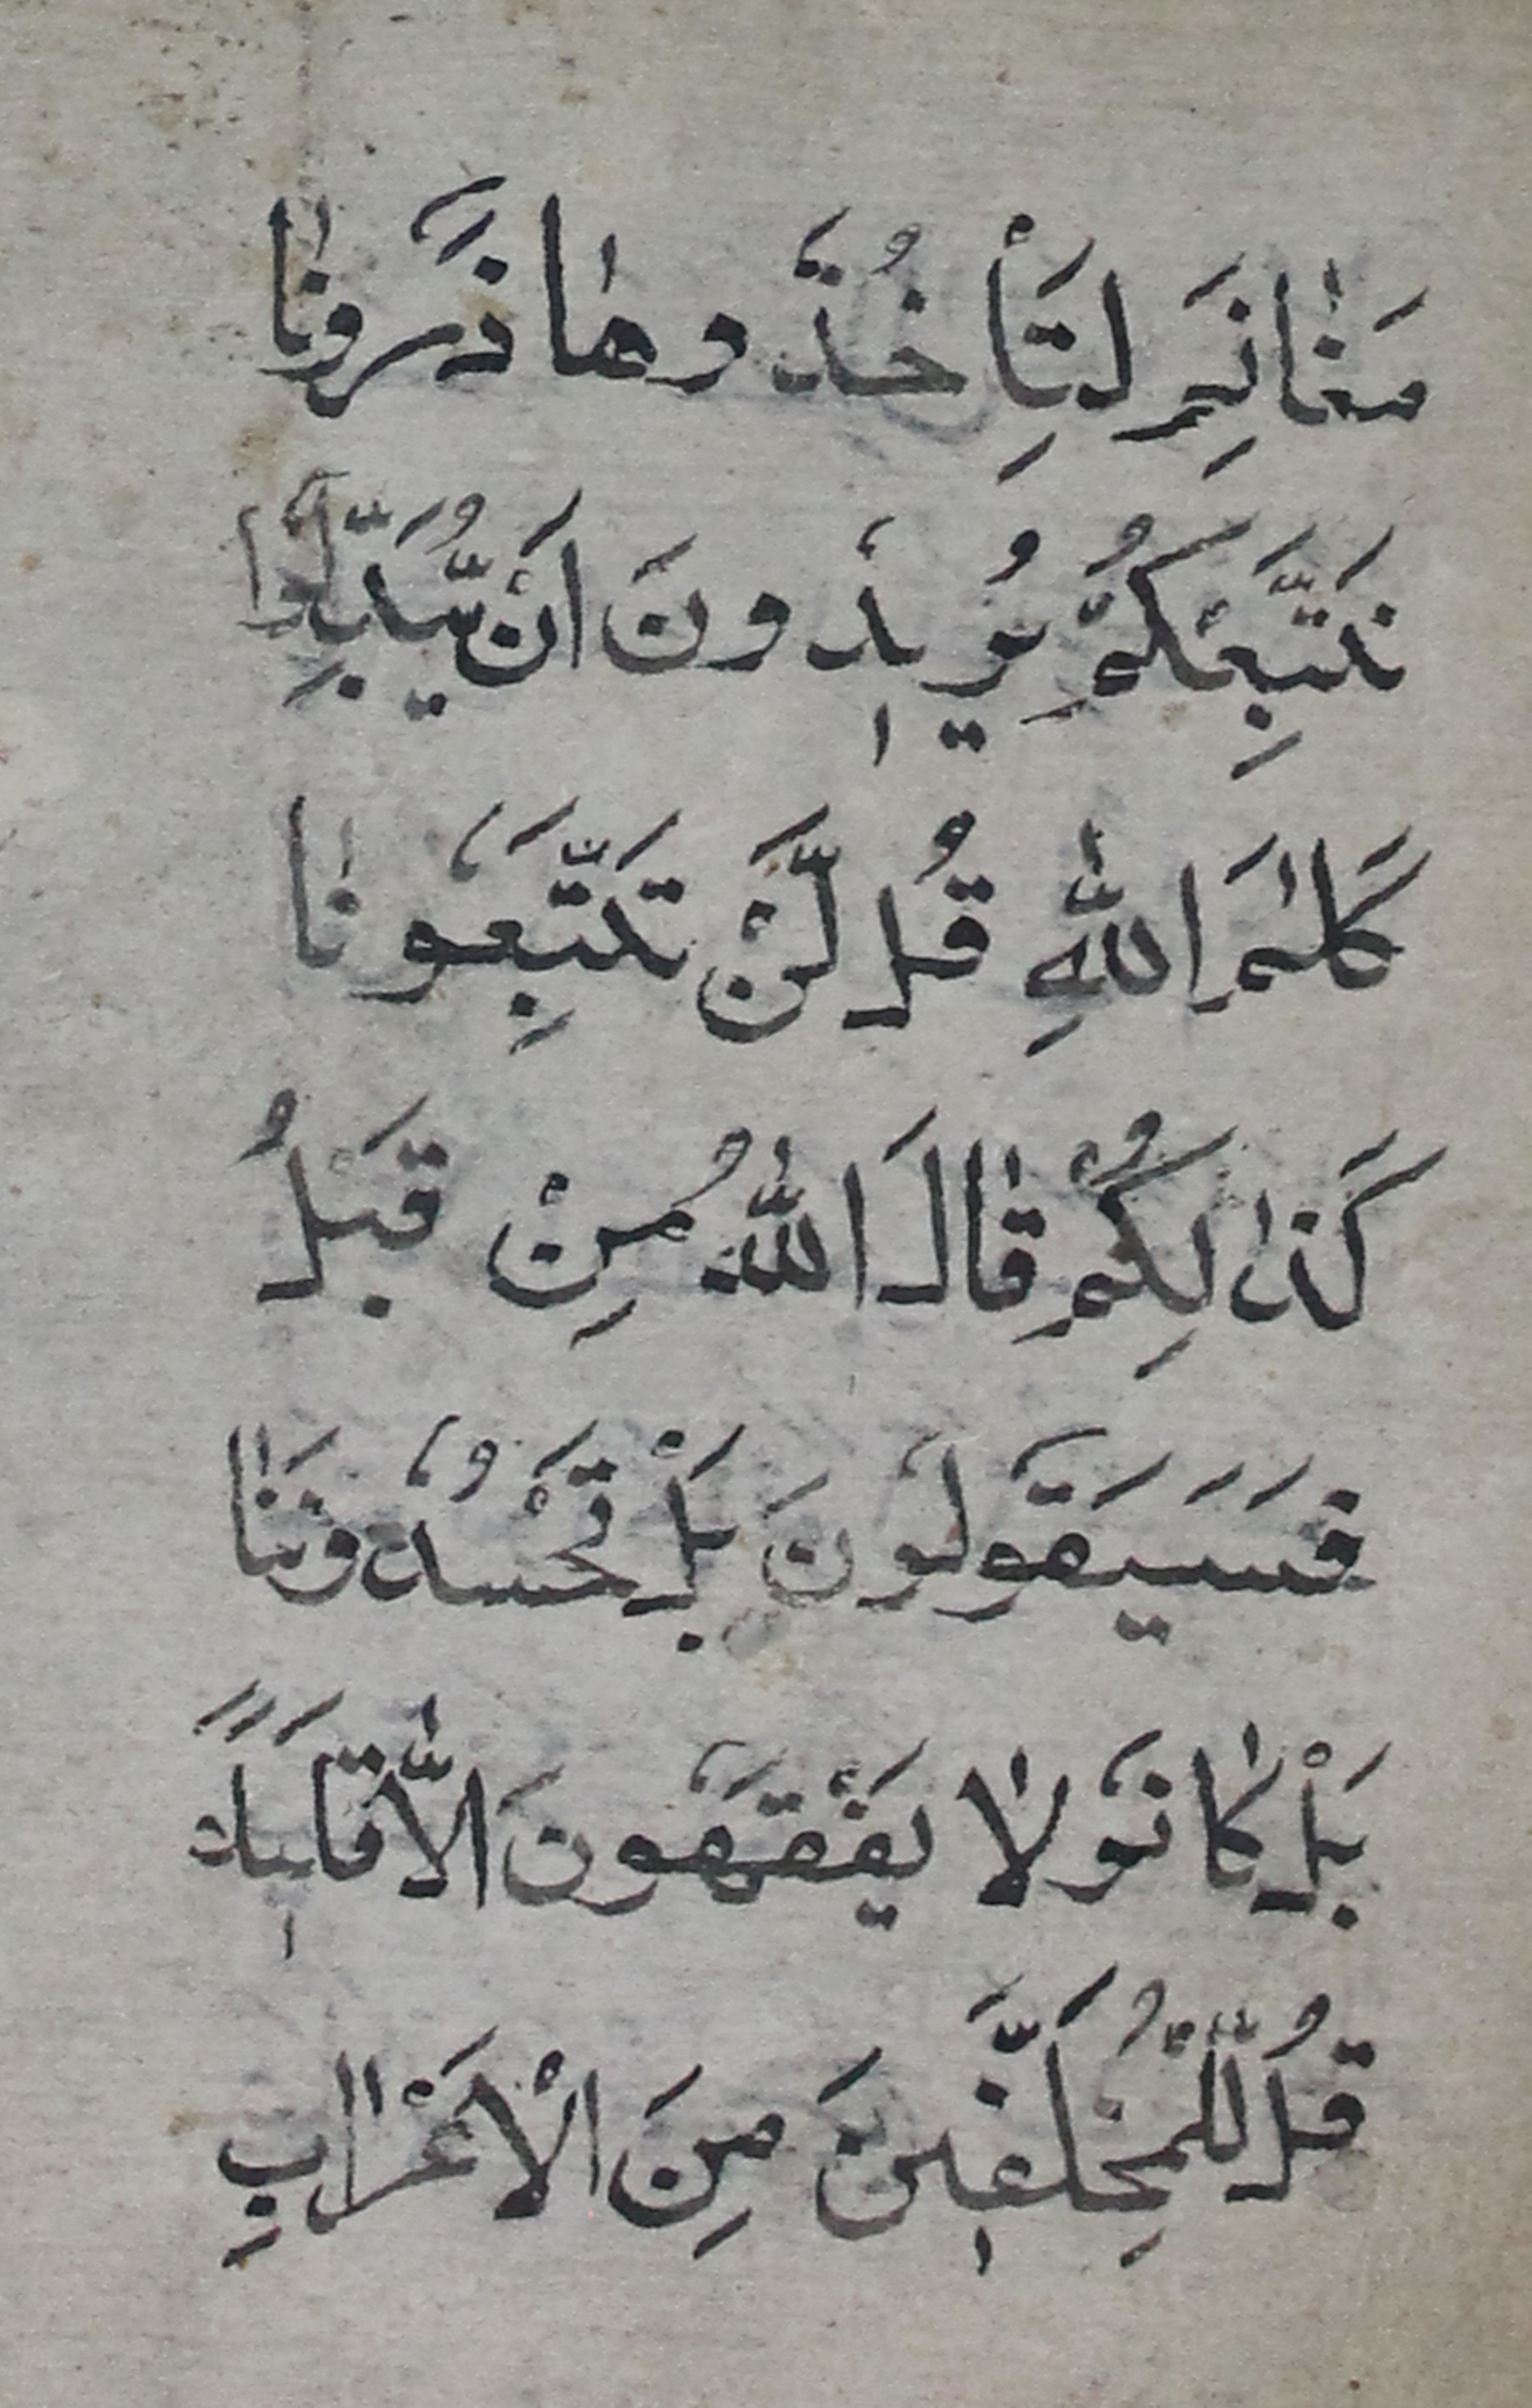 مَغٰانِمَ لِتَأْخُذُوهٰا ذَرُونٰا
نَتَّبِعْكُمْ يُرٖيدُونَ اَنْ يُّبَدِّلُوا
كَلٰمَ اللّٰهِ قُل لَّنْ تَتَّبِعُونٰا
كَذٰلِكُمْ قٰالَ اللّٰهُ مِنْ قَبْلُ
فَسَيَقُولُونَ بَلْ تَحْسُدُونَنٰا
بَلْ كٰانُو لٰا يَفْقَهُونَ الّٰا قَلٖيلًا
قُل لِّلْمُخَلَّفٖينَ مِنَ الْاَعْرٰابِ